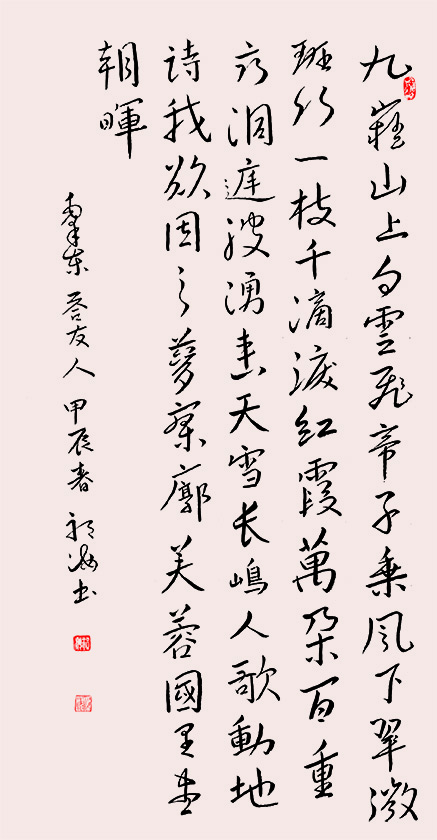 九嶷山上白雲飛帝子乘風下翠微
斑竹一枝千滴淚紅霞萬朵百重
衣洞庭波湧連天雪长嶋人歌動地
詩我欲因之夢寥廓芙蓉國里盡
朝暉
东答友人 甲辰春 书